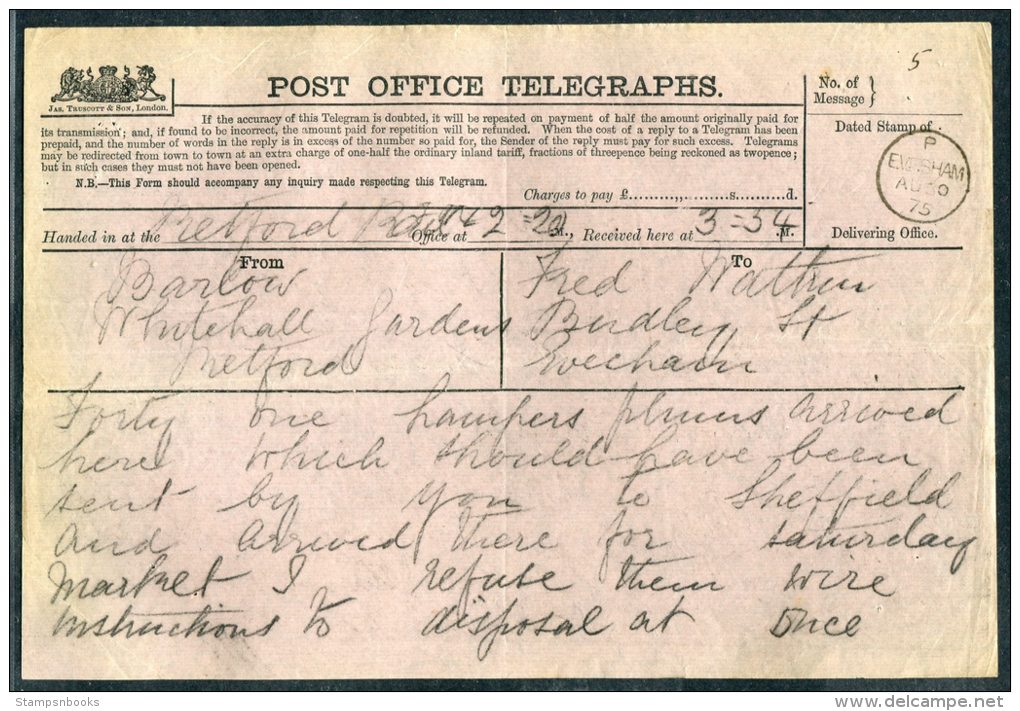 5
POST OFFICE TELEGRAPHS.
No. of
Message
JAS. TRUSCOTT & SON, London.
If the accuracy of this Telegram is doubted, it will be repeated on payment of half the amount originally paid for
its transmission; and, if found to be incorrect, the amount paid for repetition will be refunded. When the cost of a reply to a Telegram has been
prepaid, and the number of words in the reply is in excess of the number so paid for, the Sender of the reply must pay for such excess. Telegrams
may be redirected from town to town at an extra charge of one-half the ordinary inland tariff, fractions of threepence being reckoned as twopence;
but in such cases they must not have been opened.
N.B.—This Form should accompany any inquiry made respecting this Telegram.
Charges to pay £..........,,.........s..........d.
Dated Stamp of
P
EVESHAM
AU 30
75
Delivering Office.
Handed in at the Retford Office at 2=20 M., Received here at 3=34 .M.
From
Barlow
Whitehall Gardens
Retford
To
Fred
St
Evecham
Forty one hampers plums arrived
here which should have been
sent by you to Sheffield
and arrived there for saturday
market I refuse them wire
instructions to disposal at once
Stampsnbooks
www.delcampe.net